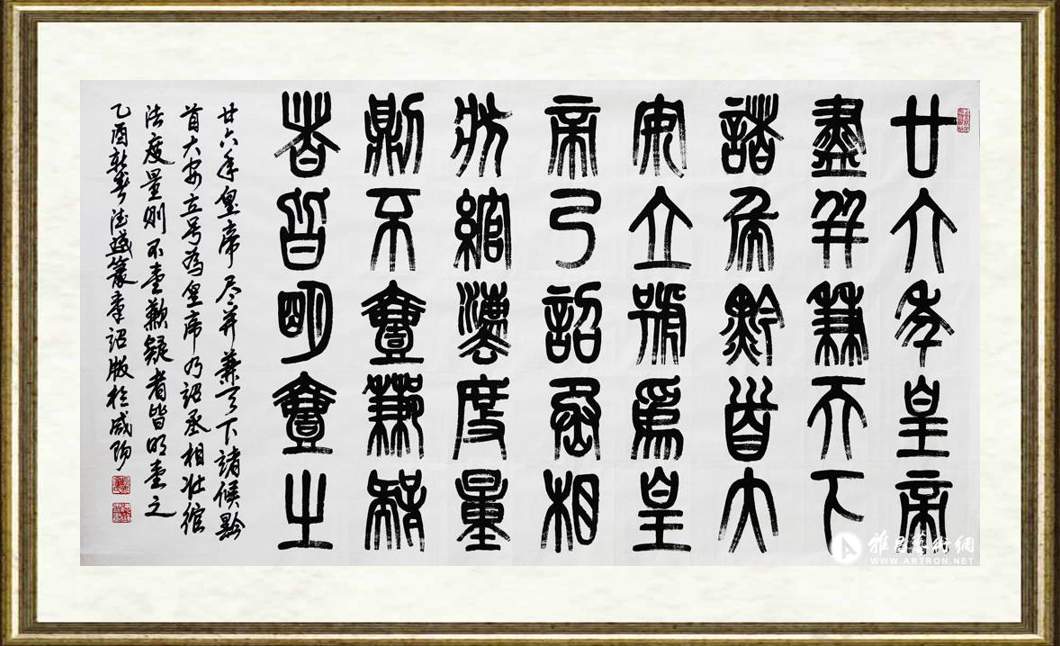 廿六年皇帝
盡并兼天下
諸侯黔首大
安立號爲皇
帝乃詔丞相
狀綰灋度量
鼎不壹歉疑
者皆明壹之
廿六年皇帝尽并兼天下諸候黔
首大安立号為皇帝乃詔丞相壮綰
法度量则不壹歉疑者皆明壹之
乙酉新春德益篆秦诏版於咸阳
雅昌藝術網
WWW.ARTRON.NET